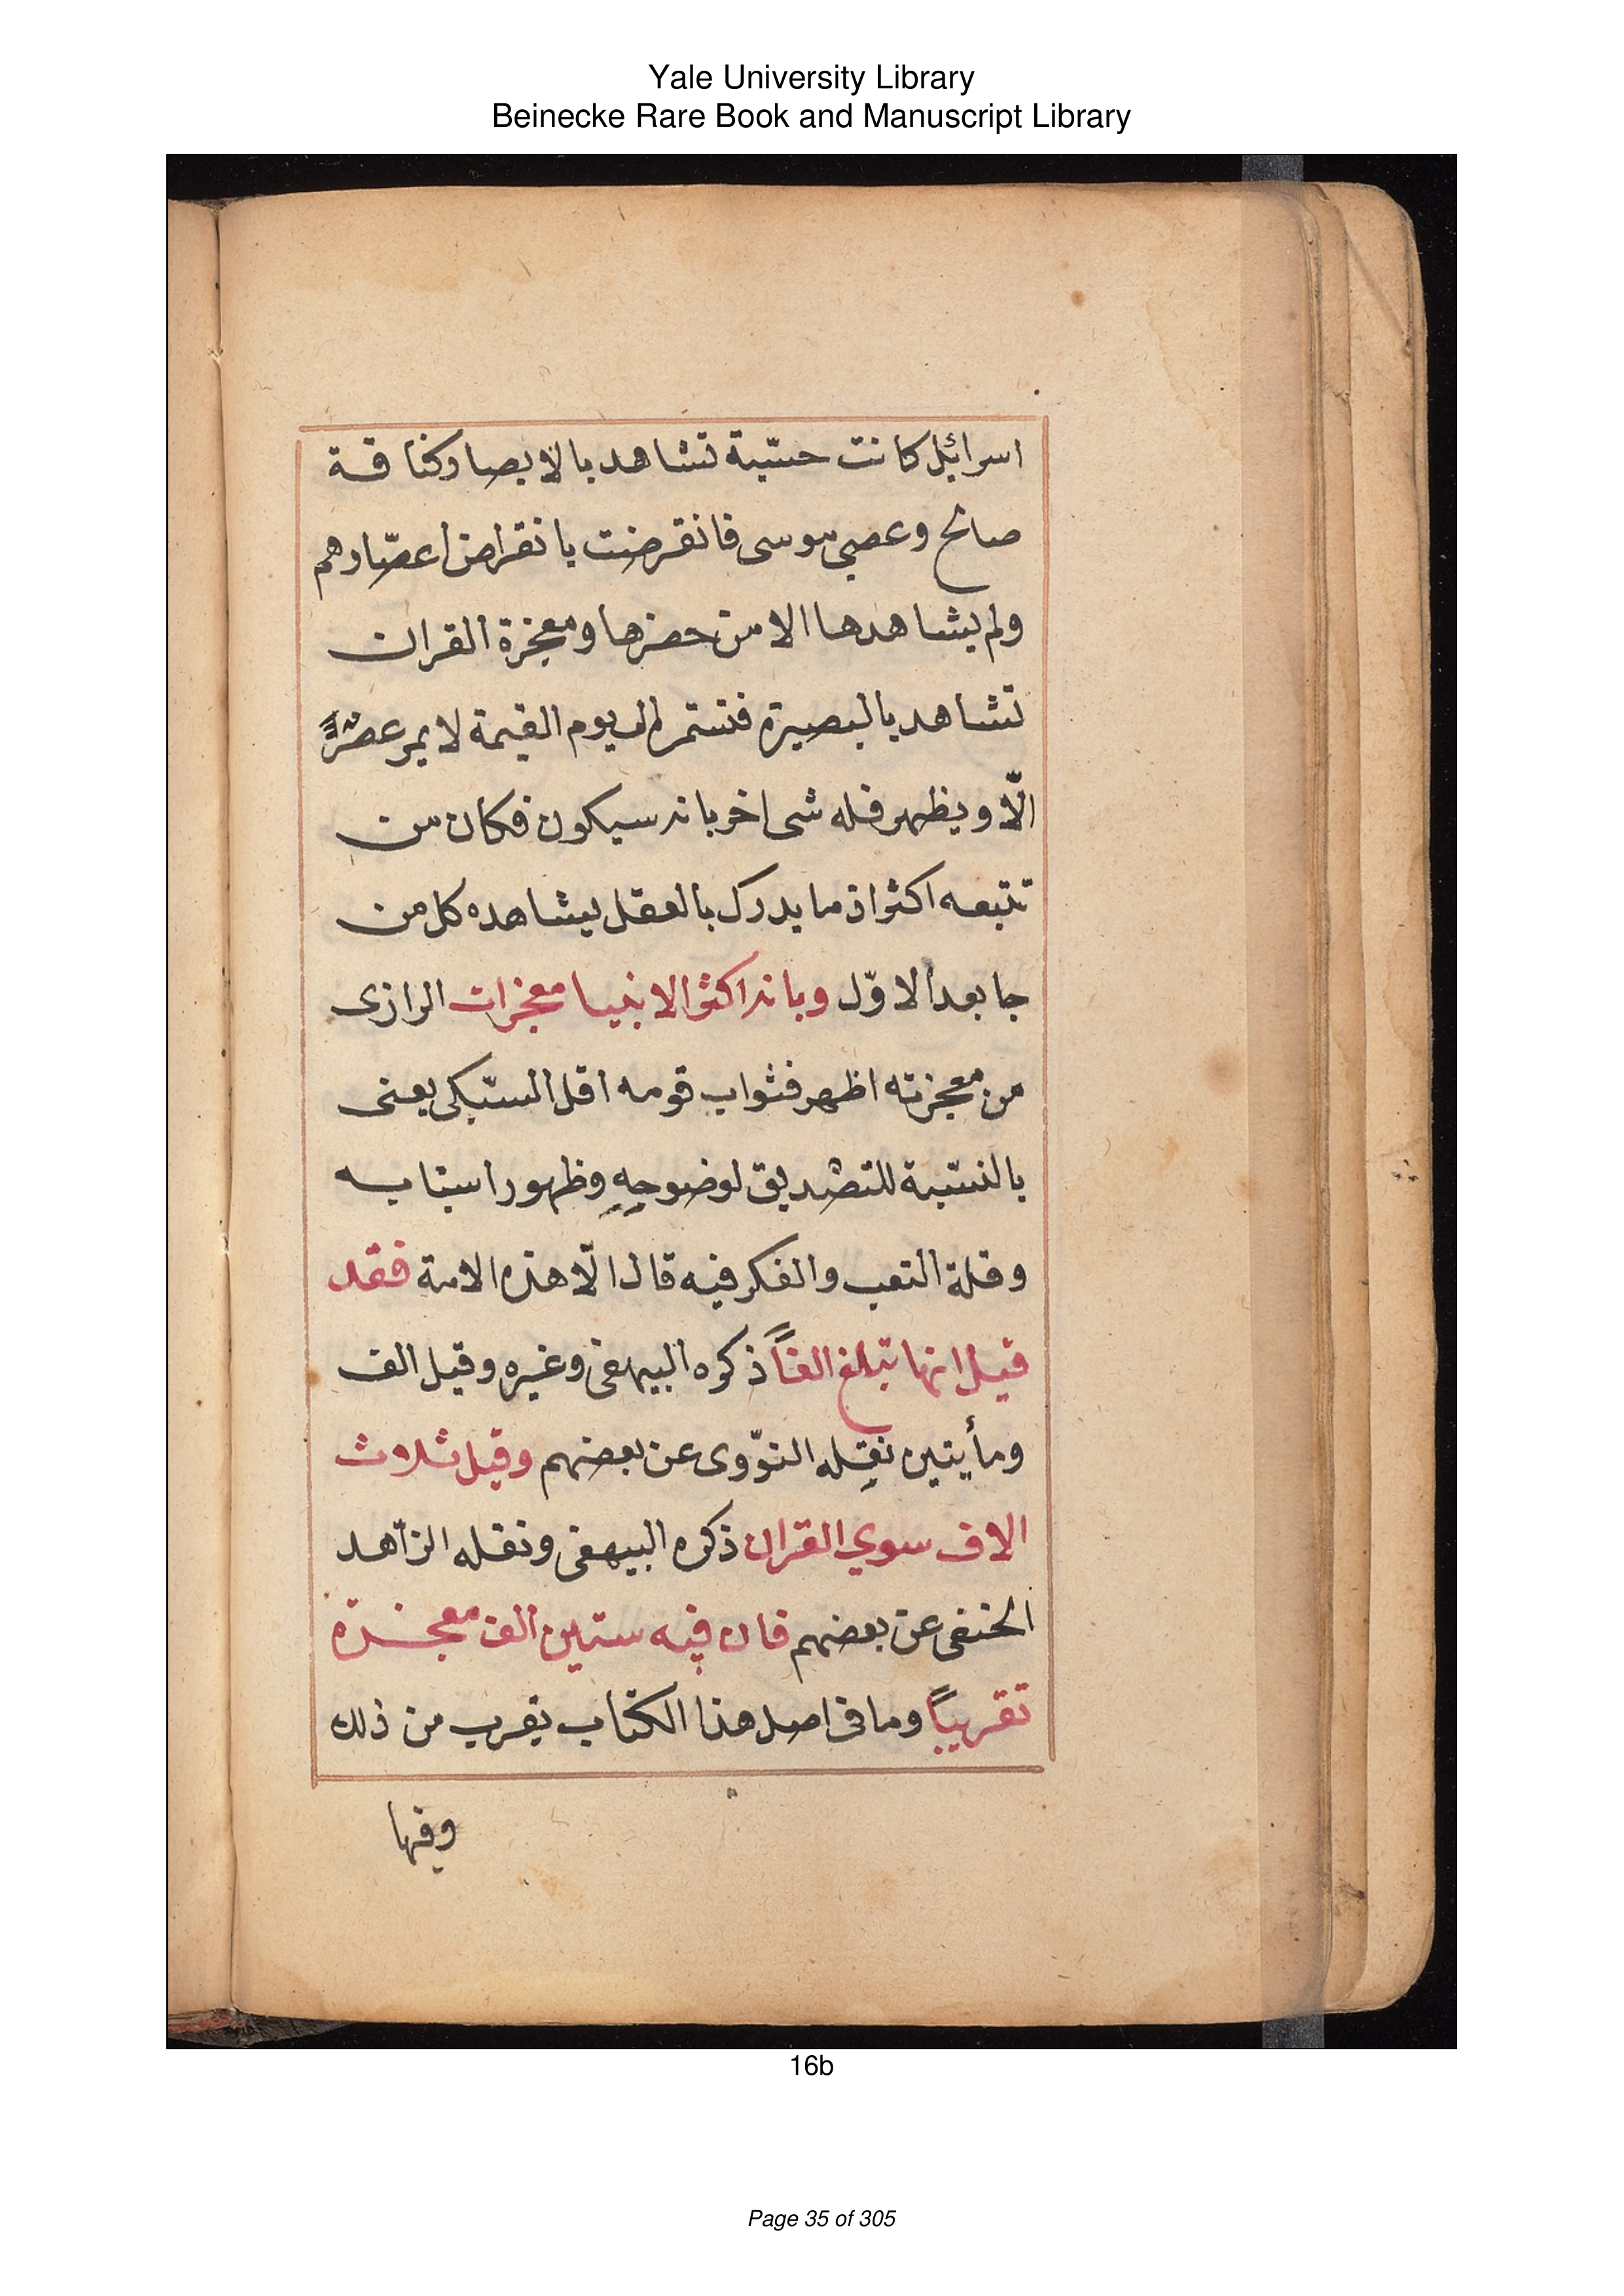 Yale University Library
Beinecke Rare Book and Manuscript Library
اسرائيل كانت حسّية تشاهد بالابصار كناقة
صالح وعصى موسى فانقرضت بانقراض اعصارهم
ولم يشاهدها الا من حضرها ومعجزة القران
تشاهد بالبصيرة فتستمر الى يوم القيمة لا يمر عصرًا
الّا ويظهر فله شى اخر بانه سيكون فكان من
تتبعه اكثر اذ ما يدرك بالعقل يشاهده كل من
جا بعد الاوّل وبانه اكثر الانبيا معجزات الرازى
من معجزته اظهر فثواب قومه اقل السّبكى يعنى
بالنسّبة للتصديق لوضوحِهِ وظهور اسبابه
وقلة التعب والفكر فيه قال الّا هذه الامة فقد
قيل انها تبلغ الفاً ذكره البيهقى وغيره وقيل الف
ومأيتين نقله النوّوى عن بعضهم وقيل ثلاث
الاف سوي القران ذكره البيهقى ونقله الزّاهد
الحنفى عن بعضهم فان فيه ستين الف معجزة
تقريباً وما فى اصل هذا الكتاب يقرب من ذلك
وفيها
16b
Page 35 of 305